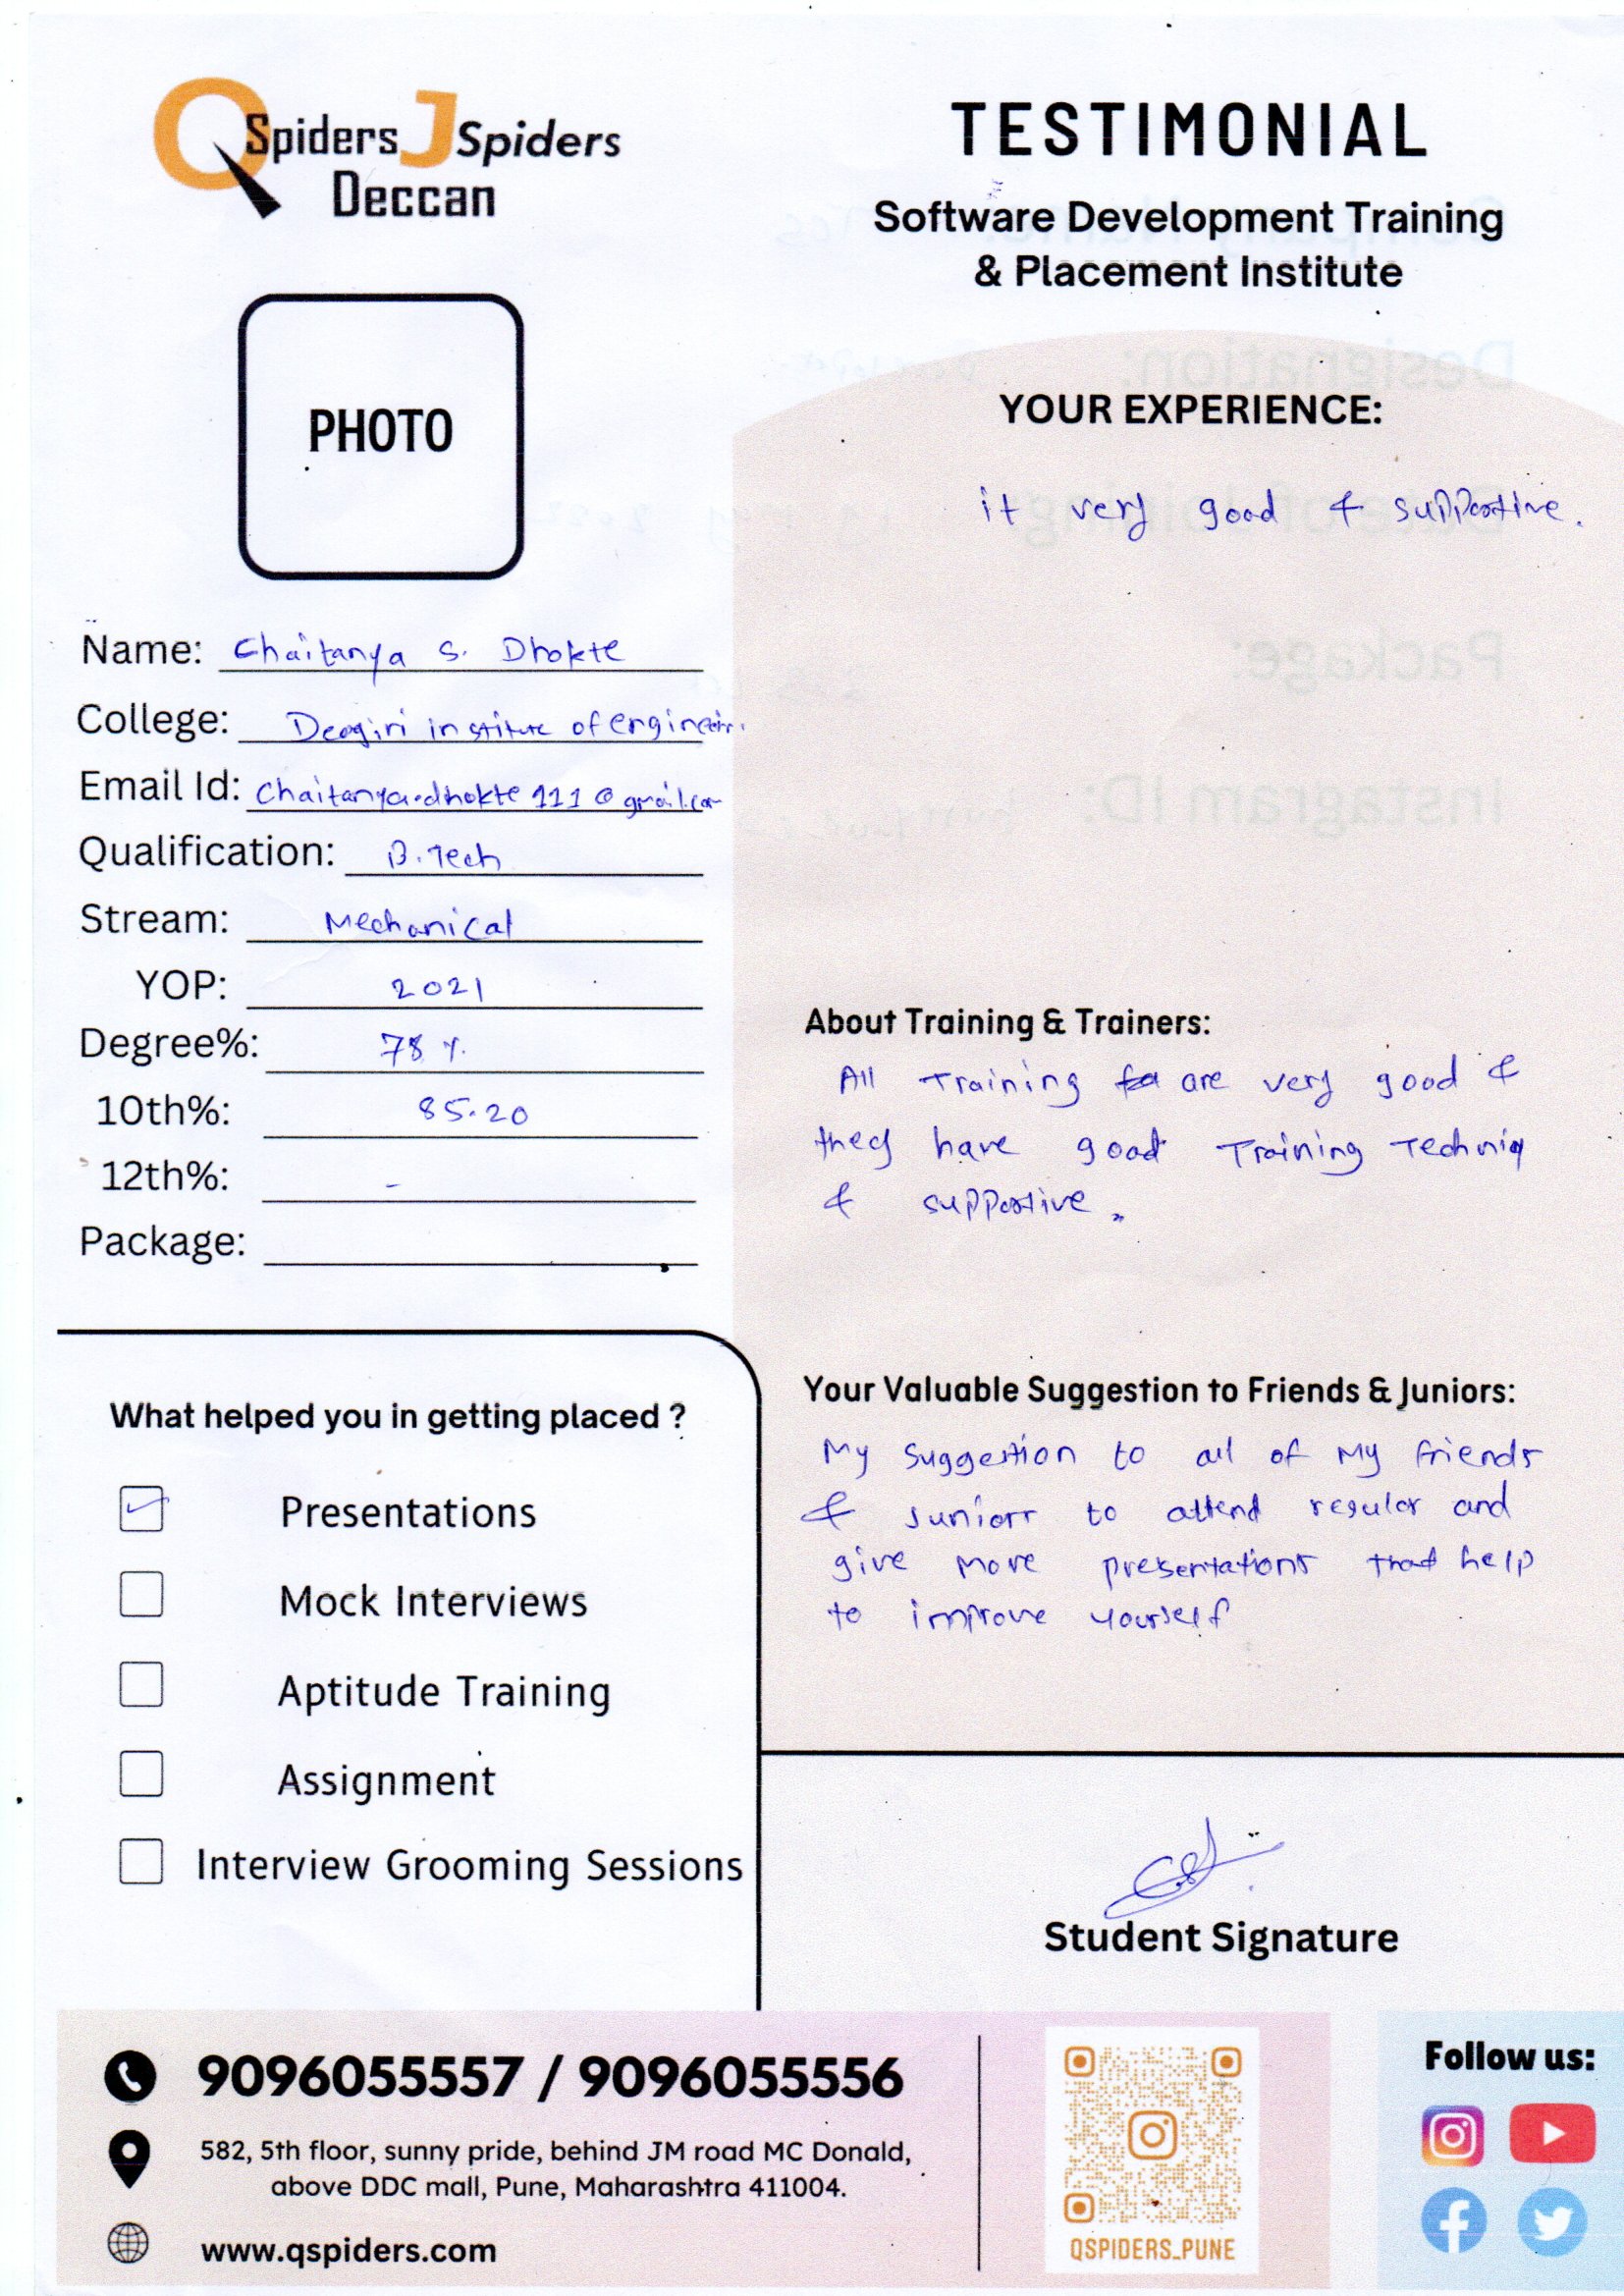 QSpiders JSpiders
Deccan
TESTIMONIAL
Software Development Training
& Placement Institute
PHOTO
YOUR EXPERIENCE:
it very good & supportive.
Name: Chaitanya S. Dhokte
College: Deogiri institute of engineer.
Email Id: Chaitanya.dhokte111@gmail.com
Qualification: B.Tech
Stream: Mechanical
YOP: 2021
Degree%: 78 %
10th%: 85.20
12th%: -
Package:
About Training & Trainers:
All Training are very good &
they have good Training Techniq
& supportive.
What helped you in getting placed ?
Presentations
Mock Interviews
Aptitude Training
Assignment
Interview Grooming Sessions
Your Valuable Suggestion to Friends & Juniors:
My suggestion to all of My friends
& Juniors to attend regular and
give More presentations that help
to improve yourself
Student Signature
9096055557 / 9096055556
582, 5th floor, sunny pride, behind JM road MC Donald,
above DDC mall, Pune, Maharashtra 411004.
www.qspiders.com
QSPIDERS_PUNE
Follow us: